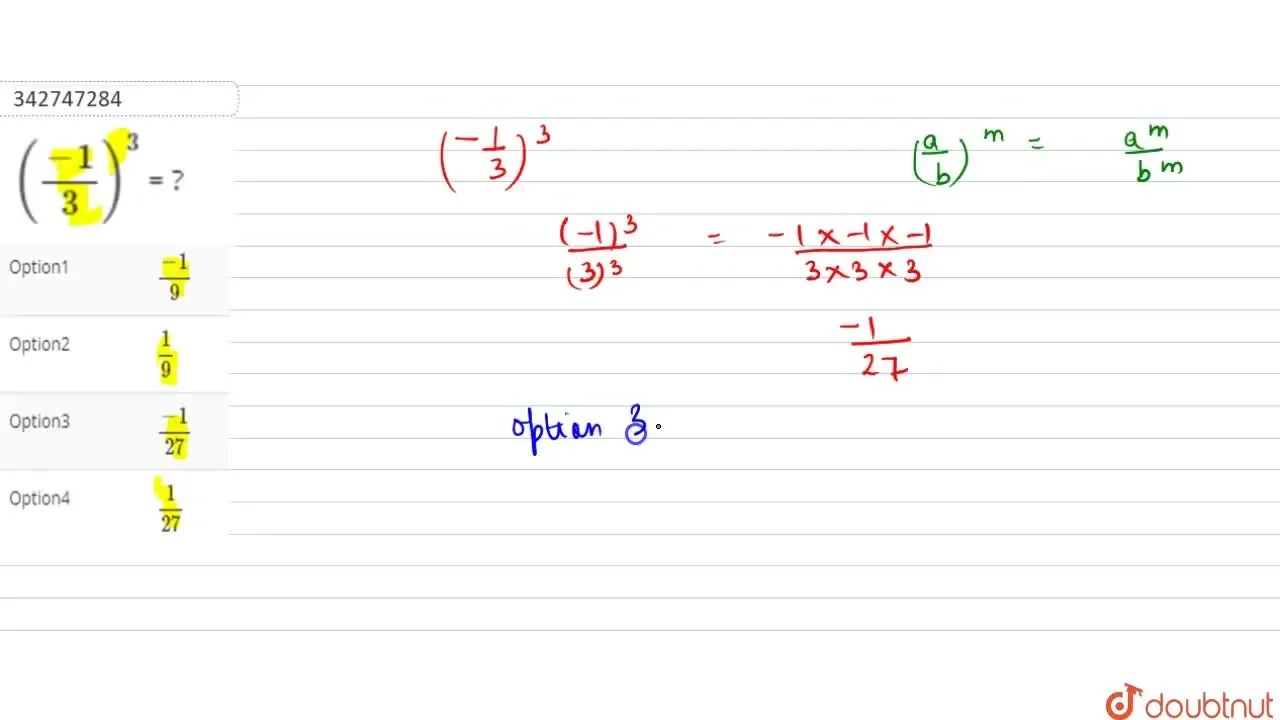 342747284
(-1/3)^3 = ?
Option1 -1/9
Option2 1/9
Option3 -1/27
Option4 1/27
(-1/3)^3
(a/b)^m = a^m/b^m
(-1)^3/(3)^3 = -1×-1×-1/3×3×3
-1/27
option 3.
doubtnut